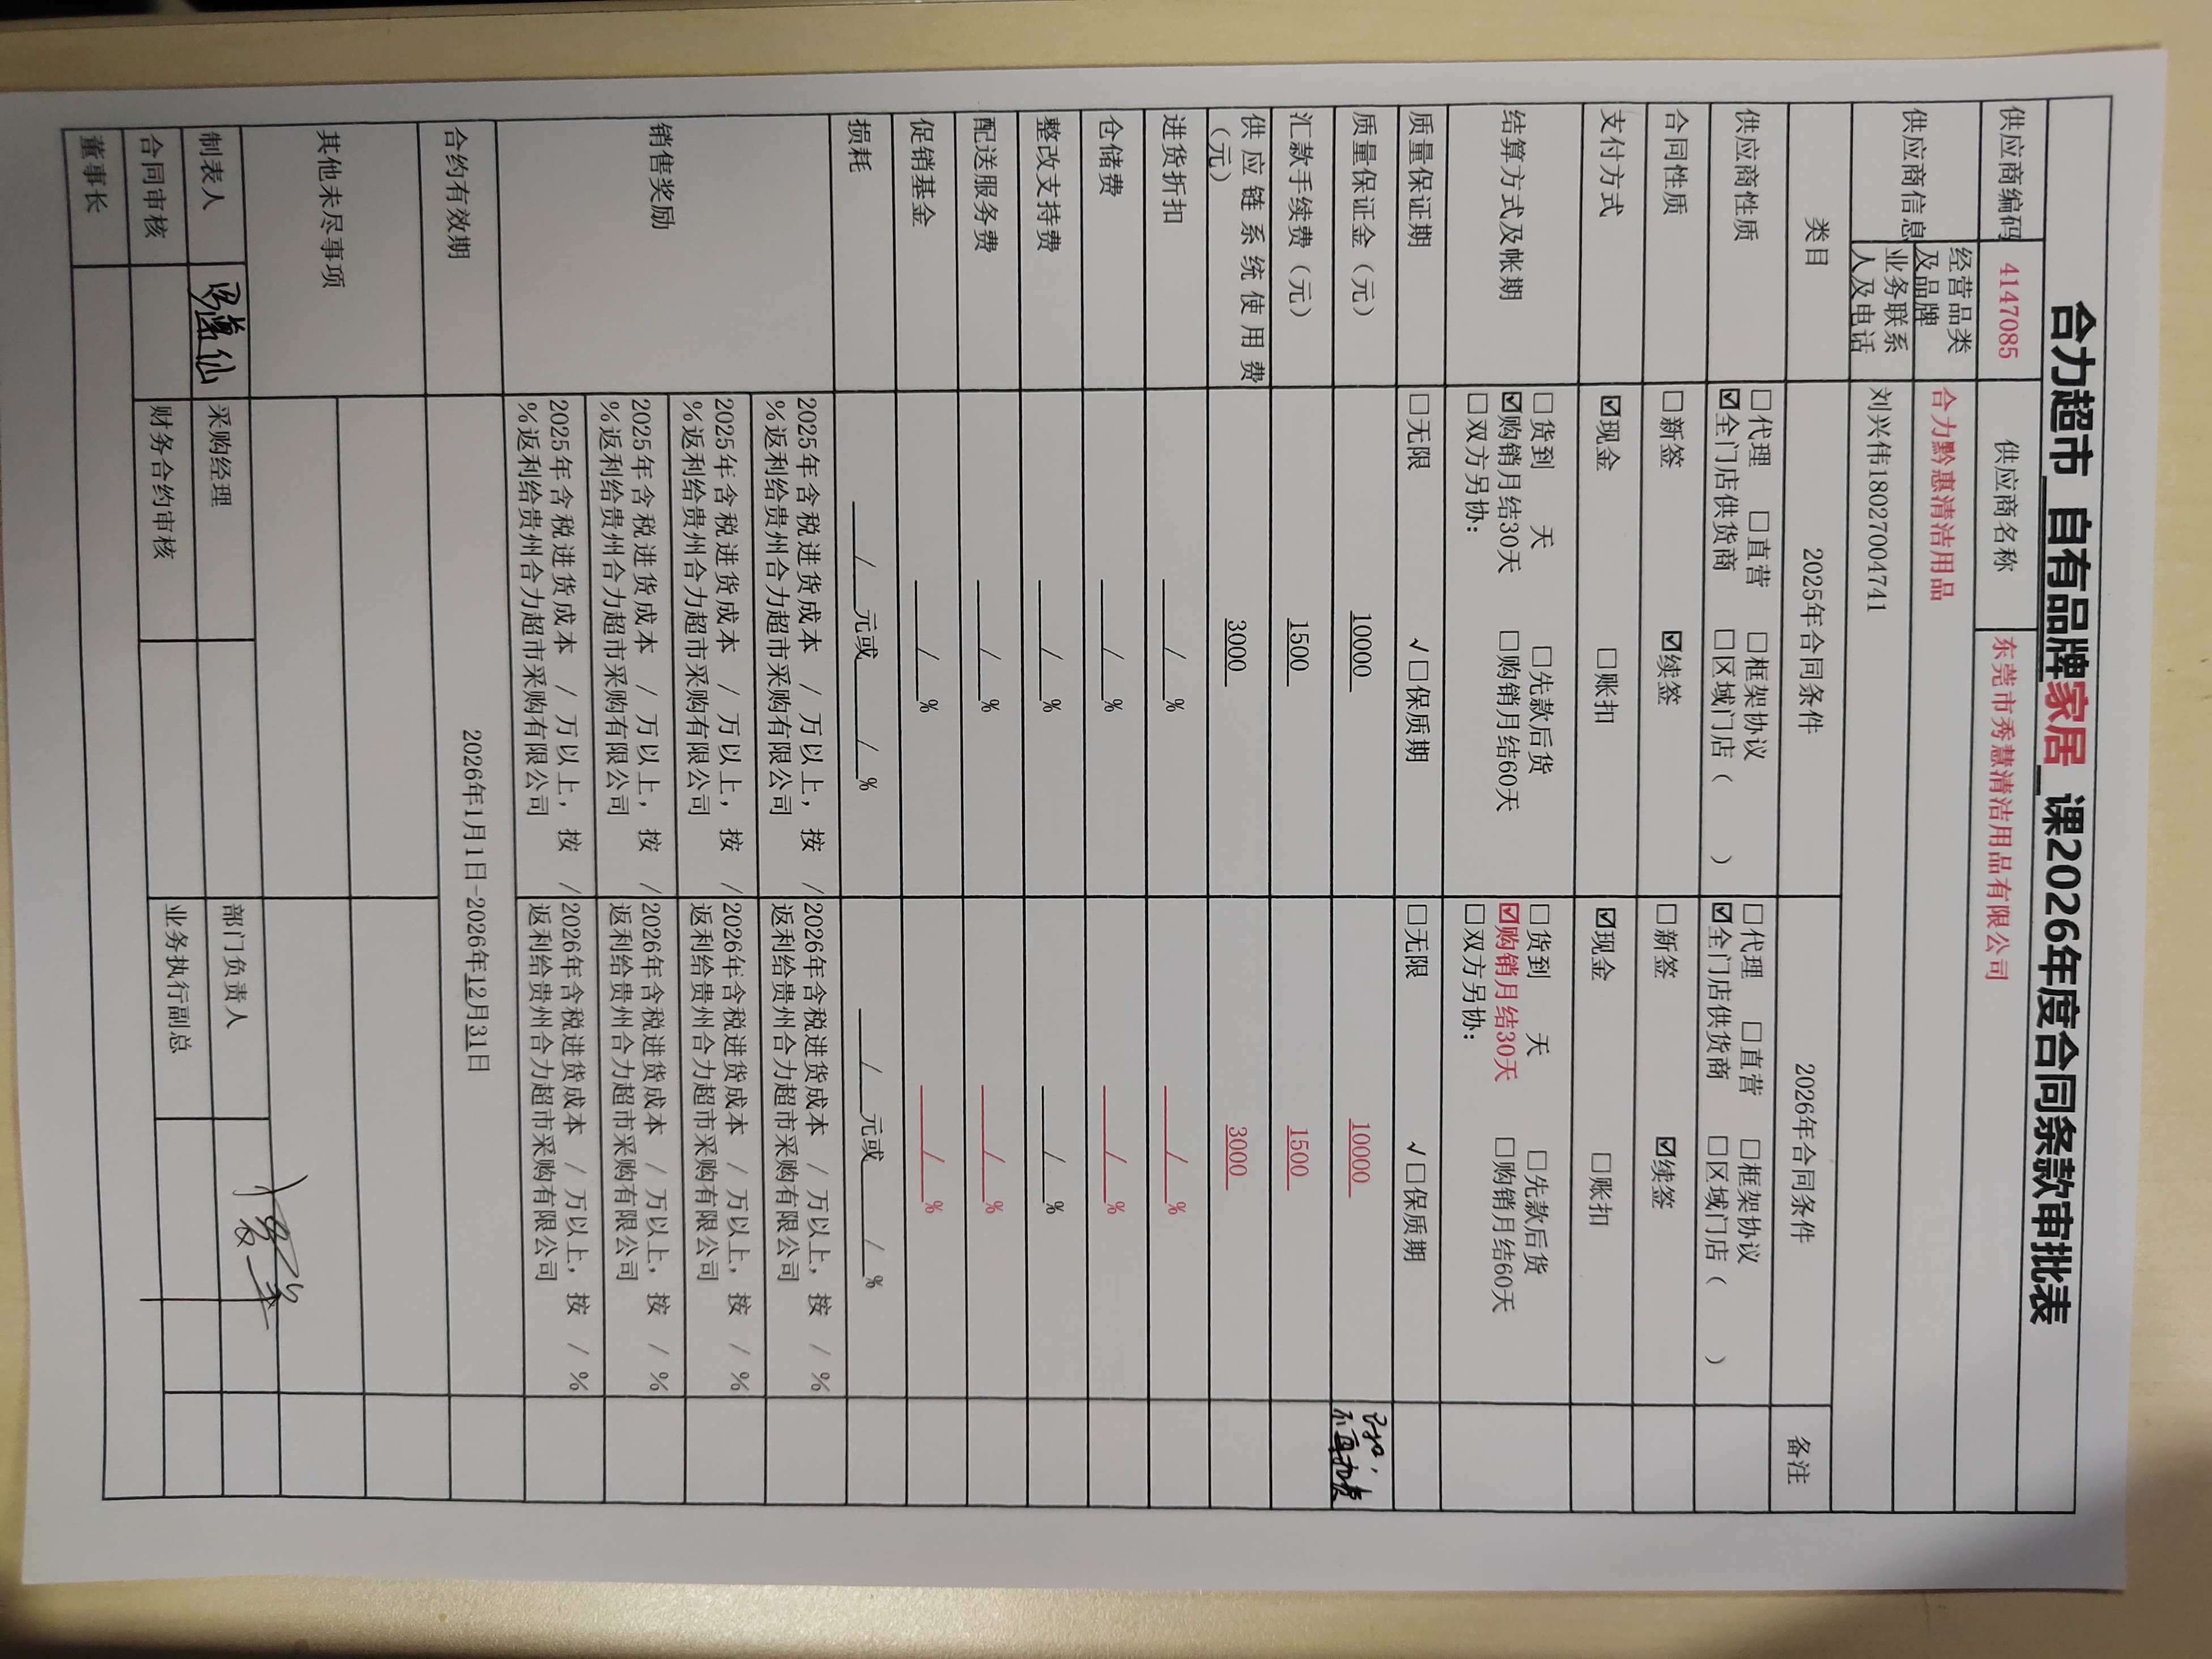 合力超市 自有品牌家居 课2026年度合同条款审批表
供应商编码 4147085 供应商名称 东莞市秀慧清洁用品有限公司
供应商信息 经营品类及品牌 合力黔惠清洁用品
业务联系人及电话 刘兴伟18027004741
类目 2025年合同条件 2026年合同条件 备注
供应商性质 □代理 □直营 □框架协议 □代理 □直营 □框架协议
☑全门店供货商 □区域门店（ ） ☑全门店供货商 □区域门店（ ）
合同性质 □新签 ☑续签 □新签 ☑续签
支付方式 ☑现金 □账扣 ☑现金 □账扣
结算方式及帐期 □货到 天 □先款后货 □货到 天 □先款后货
☑购销月结30天 □购销月结60天 ☑购销月结30天 □购销月结60天
□双方另协： □双方另协：
质量保证期 □无限 √□保质期 □无限 √□保质期
质量保证金（元） 10000 10000 不再扣收
汇款手续费（元） 1500 1500
供应链系统使用费（元） 3000 3000
进货折扣 /% /%
仓储费 /% /%
整改支持费 /% /%
配送服务费 /% /%
促销基金 /% /%
损耗 /元或 /% /元或 /%
销售奖励 2025年含税进货成本 / 万以上，按 /%返利给贵州合力超市采购有限公司 2026年含税进货成本 / 万以上，按 / %返利给贵州合力超市采购有限公司
2025年含税进货成本 / 万以上，按 /%返利给贵州合力超市采购有限公司 2026年含税进货成本 / 万以上，按 / %返利给贵州合力超市采购有限公司
2025年含税进货成本 / 万以上，按 /%返利给贵州合力超市采购有限公司 2026年含税进货成本 / 万以上，按 / %返利给贵州合力超市采购有限公司
2025年含税进货成本 / 万以上，按 /%返利给贵州合力超市采购有限公司 2026年含税进货成本 / 万以上，按 / %返利给贵州合力超市采购有限公司
合约有效期 2026年1月1日-2026年12月31日
其他未尽事项
制表人 采购经理 部门负责人
合同审核 财务合约审核 业务执行副总
董事长